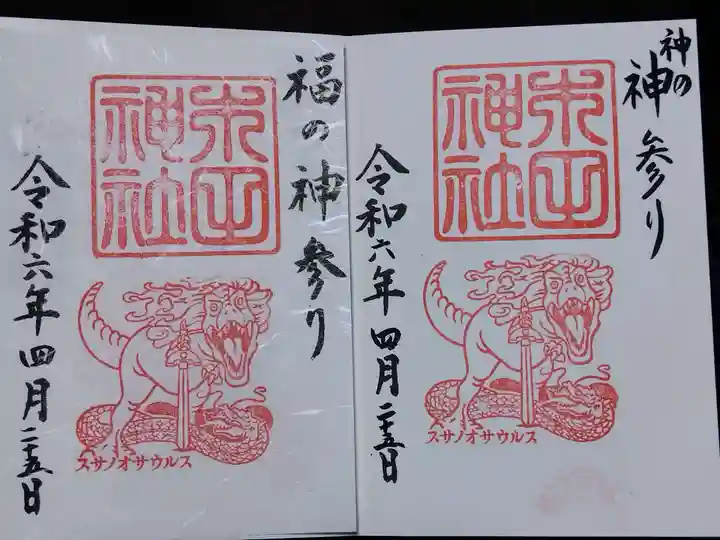 神の
神参り
神社
令和六年四月二十五日
スサノオサウルス
福の神参り
神社
令和六年四月二十五日
スサノオサウルス